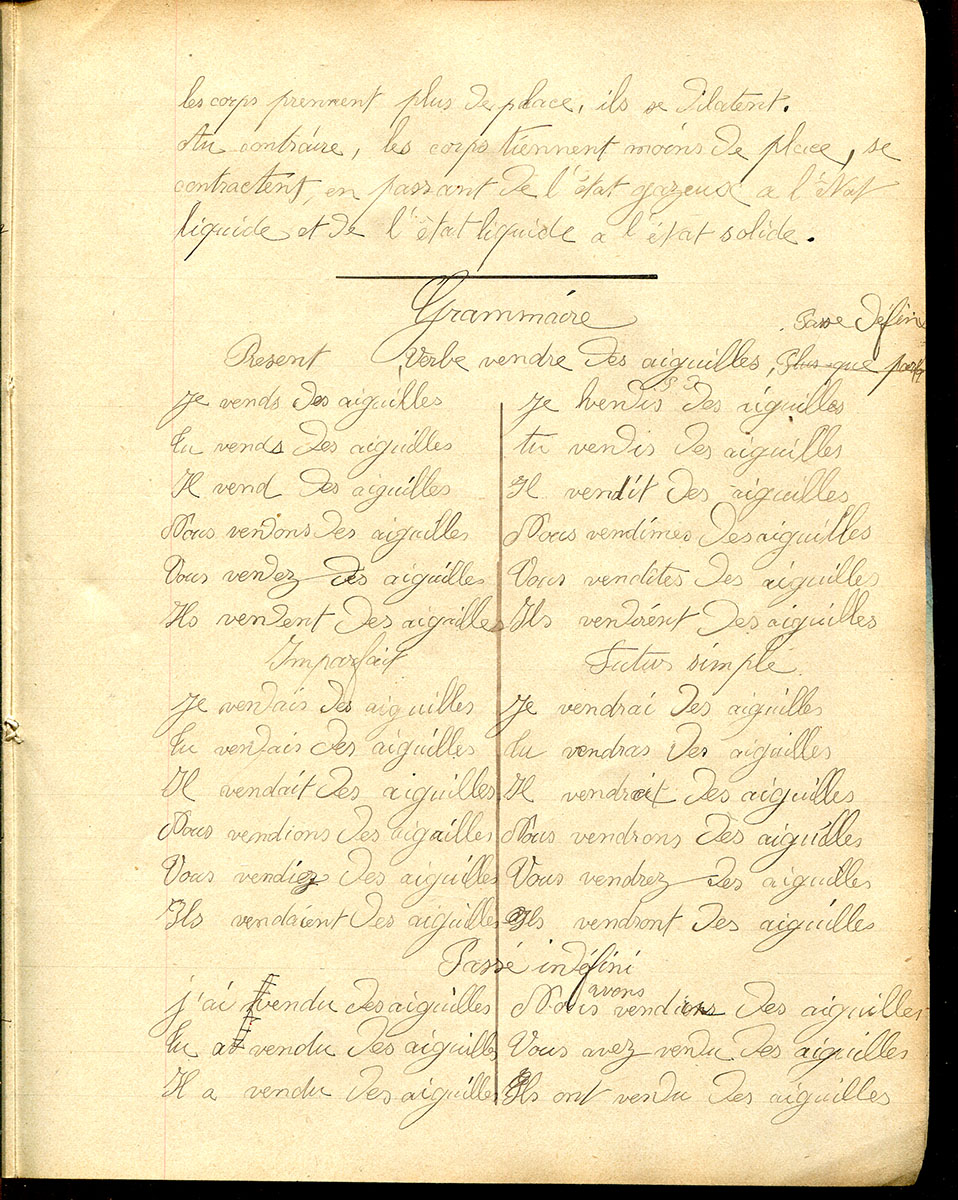 les corps prennent plus de place, ils se dilatent.
Au contraire, les corps tiennent moins de place, se
contractent, en passant de l'état gazeux a l'état
liquide et de l'état liquide a l'état solide.
Grammaire
Passe défini
Present Verbe vendre des aiguilles, Plus-que parf
Je vends des aiguilles
Tu vends des aiguilles
Il vend des aiguilles
Nous vendons des aiguilles
Vous vendez des aiguilles
Ils vendent des aiguilles
Je vendis des aiguilles
tu vendis des aiguilles
Il vendit des aiguilles
Nous vendimes des aiguilles
Vous vendites des aiguilles
Ils vendirent des aiguilles
Imparfait
Je vendais des aiguilles
Tu vendais des aiguilles
Il vendait des aiguilles
Nous vendions des aiguilles
Vous vendiez des aiguilles
Ils vendaient des aiguilles
Futur simple
Je vendrai des aiguilles
Tu vendras des aiguilles
Il vendrait des aiguilles
Nous vendrons des aiguilles
Vous vendrez des aiguilles
Ils vendront des aiguilles
Passé indéfini
j'ai vendu des aiguilles
Tu as vendu des aiguilles
Il a vendu des aiguilles
avons
Nous vendions des aiguilles
Vous avez vendu des aiguilles
Ils ont vendu des aiguilles